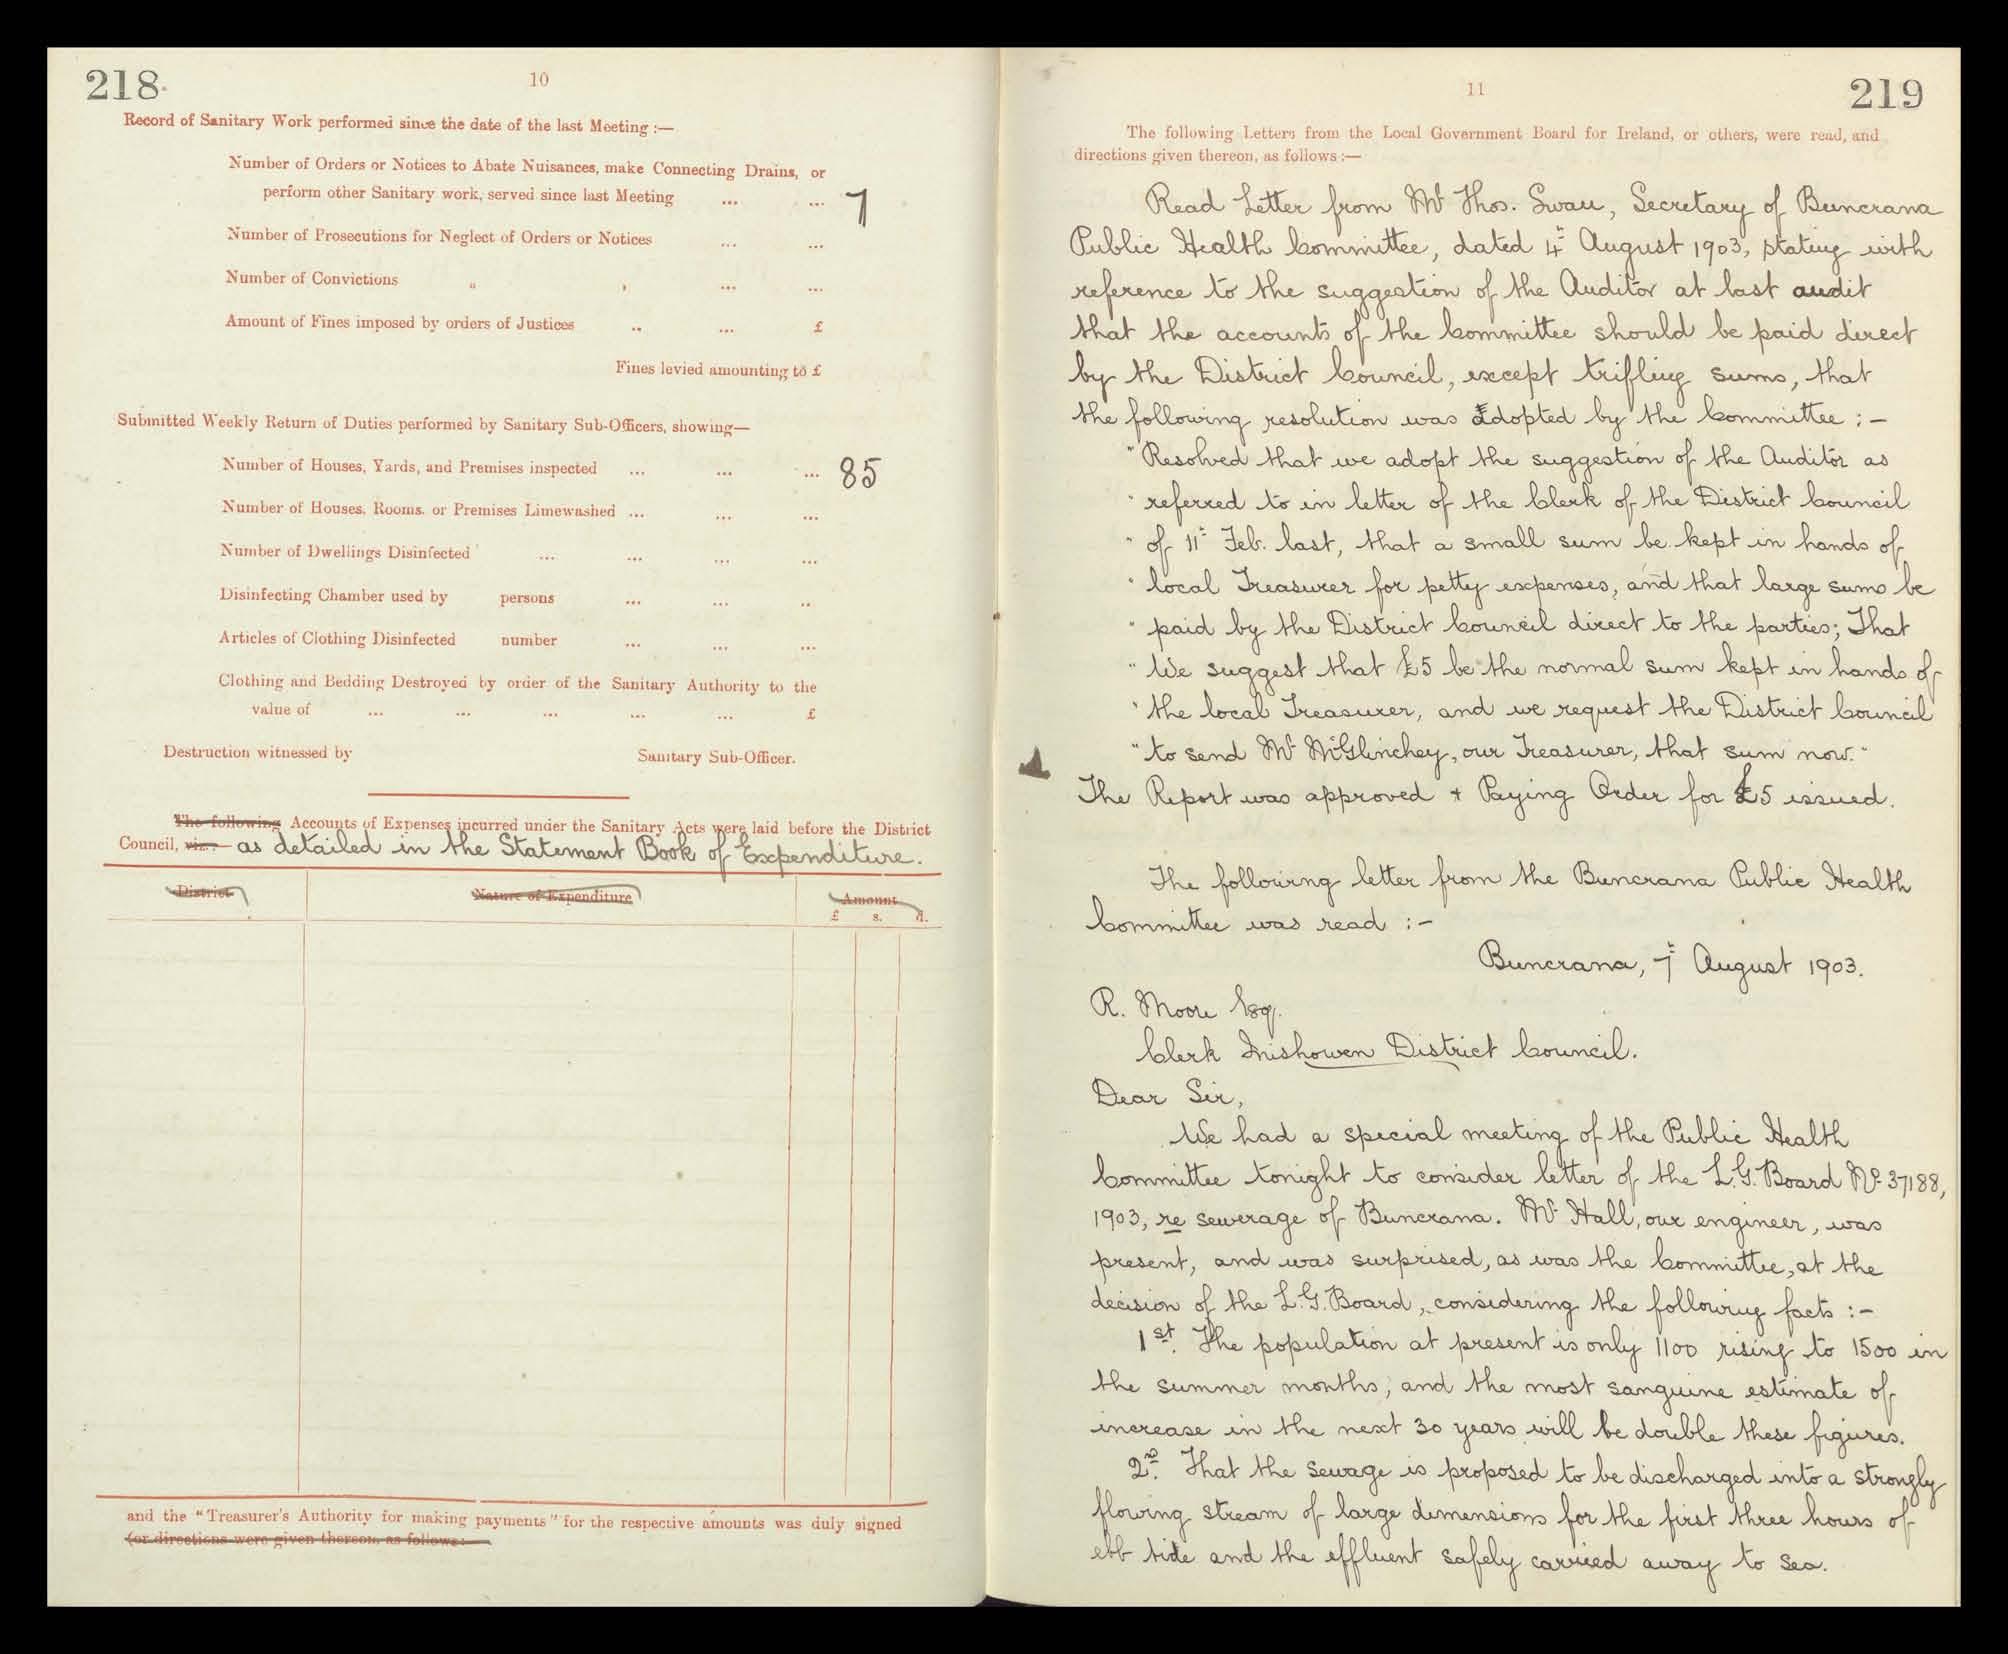 218
10
Record of Sanitary Work performed since the date of the last Meeting :—
Number of Orders or Notices to Abate Nuisances, make Connecting Drains, or
perform other Sanitary work, served since last Meeting ... ... 7
Number of Prosecutions for Neglect of Orders or Notices ... ...
Number of Convictions " , ... ...
Amount of Fines imposed by orders of Justices .. ... £
Fines levied amounting to £
Submitted Weekly Return of Duties performed by Sanitary Sub-Officers, showing—
Number of Houses, Yards, and Premises inspected ... ... ... 85
Number of Houses, Rooms, or Premises Limewashed ... ... ...
Number of Dwellings Disinfected ... ... ... ...
Disinfecting Chamber used by persons ... ... ..
Articles of Clothing Disinfected number ... ... ...
Clothing and Bedding Destroyed by order of the Sanitary Authority to the
value of ... ... ... ... ... £
Destruction witnessed by Sanitary Sub-Officer.
The following Accounts of Expenses incurred under the Sanitary Acts were laid before the District
Council, viz.:— as detailed in the Statement Book of Expenditure.
District Nature of Expenditure Amount
£ s. d.
and the "Treasurer's Authority for making payments" for the respective amounts was duly signed
(or directions were given thereon, as follows:—
11
219
The following Letters from the Local Government Board for Ireland, or others, were read, and
directions given thereon, as follows :—
Read Letter from Mr Thos. Swan, Secretary of Buncrana
Public Health Committee, dated 4th August 1903, stating with
reference to the suggestion of the Auditor at last audit
that the accounts of the Committee should be paid direct
by the District Council, except trifling sums, that
the following resolution was adopted by the Committee :-
"Resolved that we adopt the suggestion of the Auditor as
" referred to in letter of the Clerk of the District Council
" of 11th Feb. last, that a small sum be kept in hands of
" local Treasurer for petty expenses, and that large sums be
" paid by the District Council direct to the parties; That
" We suggest that £5 be the normal sum kept in hands of
" the local Treasurer, and we request the District Council
" to send Mr McGlinchey, our Treasurer, that sum now."
The Report was approved + Paying Order for £5 issued.
The following letter from the Buncrana Public Health
Committee was read :-
Buncrana, 7th August 1903.
R. Moore Esq.
Clerk Inishowen District Council.
Dear Sir,
We had a special meeting of the Public Health
Committee tonight to consider letter of the L.G. Board No 37188,
1903, re sewerage of Buncrana. Mr Hall, our engineer, was
present, and was surprised, as was the Committee, at the
decision of the L.G. Board, considering the following facts :-
1st. The population at present is only 1100 rising to 1500 in
the summer months, and the most sanguine estimate of
increase in the next 30 years will be double these figures.
2nd. That the sewage is proposed to be discharged into a strongly
flowing stream of large dimensions for the first three hours of
ebb tide and the effluent safely carried away to sea.